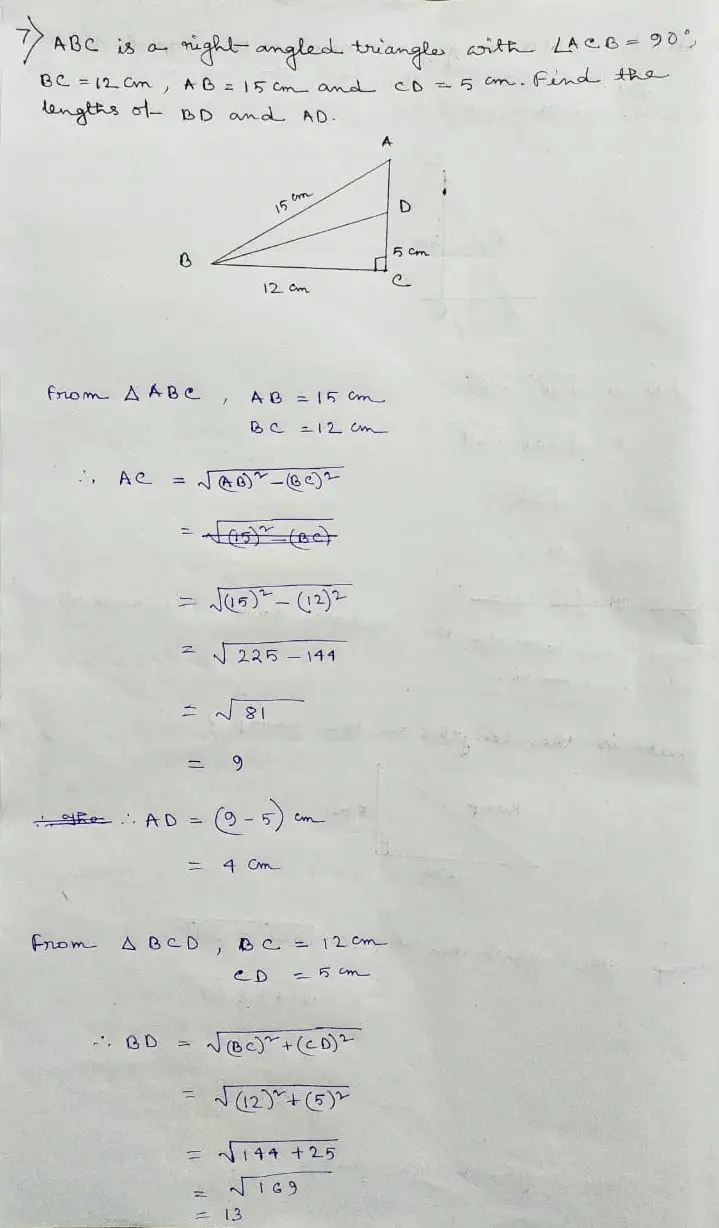 7) ABC is a right angled triangle with ∠ACB = 90°,
BC = 12 cm, AB = 15 cm and CD = 5 cm. Find the
lengths of BD and AD.
A
15 cm
D
B
5 cm
C
12 cm
From △ ABC, AB = 15 cm
BC = 12 cm
∴ AC = √(AB)² - (BC)²
= √(15)² - (BC)
= √(15)² - (12)²
= √225 - 144
= √81
= 9
∴ AD = (9 - 5) cm
= 4 cm
From △ BCD, BC = 12 cm
CD = 5 cm
∴ BD = √(BC)² + (CD)²
= √(12)² + (5)²
= √144 + 25
= √169
= 13